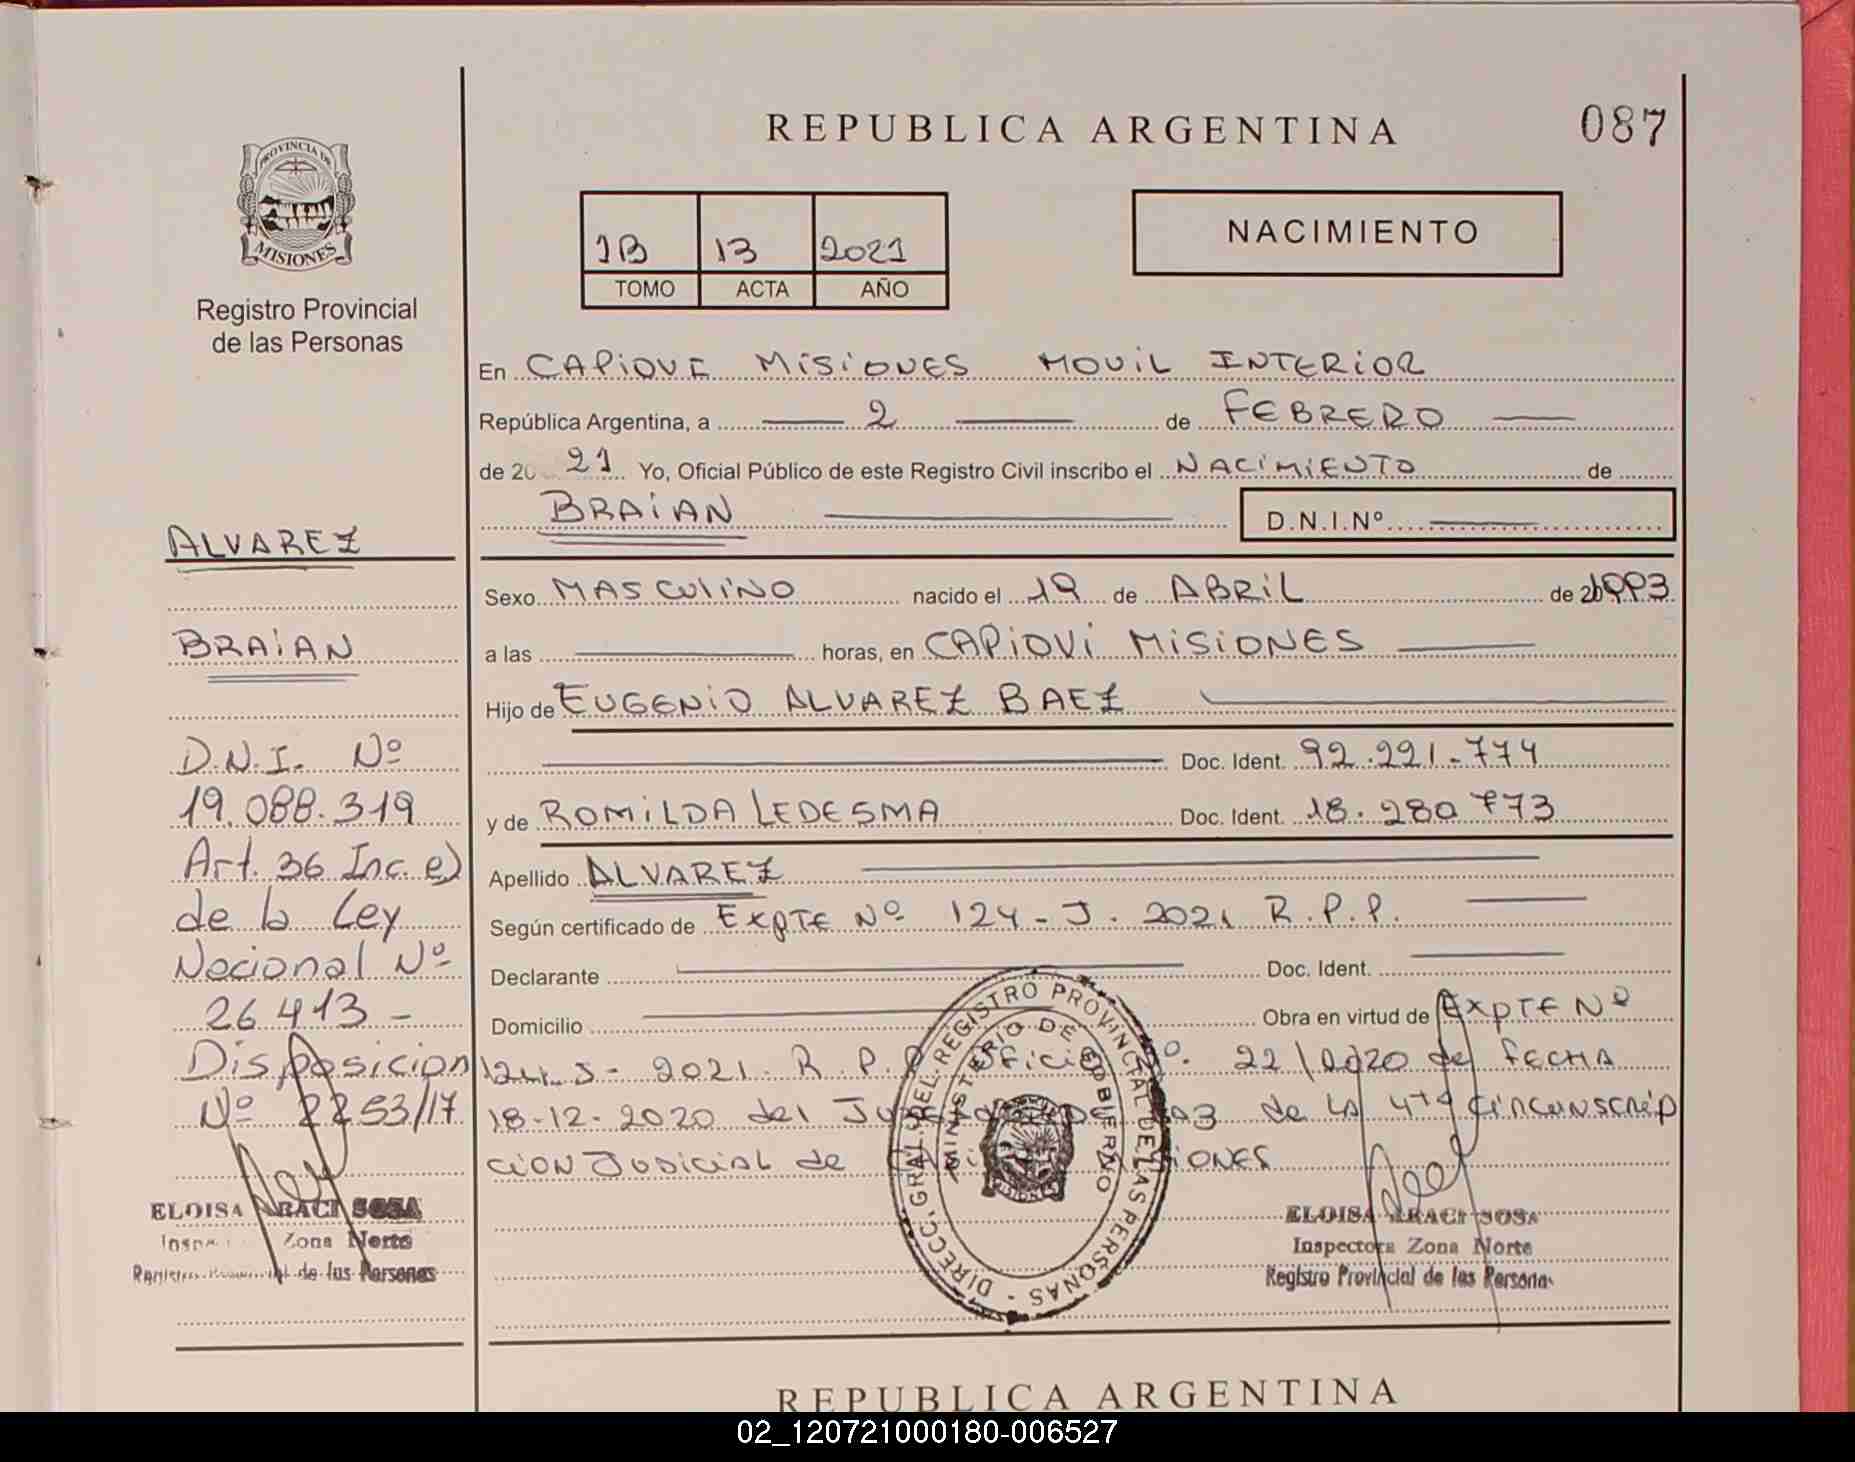 REPUBLICA ARGENTINA
087
PROVINCIA DE
MISIONES
Registro Provincial
de las Personas
1B 13 2021
TOMO ACTA AÑO
NACIMIENTO
En CAPIOVI MISIONES MOVIL INTERIOR
República Argentina, a 2 de FEBRERO
de 20 21 Yo, Oficial Público de este Registro Civil inscribo el NACIMIENTO de
BRAIAN D.N.I.Nº
Sexo MASCULINO nacido el 19 de ABRIL de 201993
a las horas, en CAPIOVI MISIONES
Hijo de EUGENIO ALVAREZ BAEZ
Doc. Ident. 92.221.774
y de ROMILDA LEDESMA Doc. Ident. 18.280773
Apellido ALVAREZ
Según certificado de EXPTE Nº 124-J. 2021 R.P.P.
Declarante Doc. Ident.
Domicilio Obra en virtud de EXPTE Nº
124-J-2021. R.P.P. Oficio Nº. 22/2020 de FECHA
18-12-2020 del de LA 4ta CIRCUNSCRIP
CION JUDICIAL de
ALVAREZ
BRAIAN
D.N.I. Nº
19.088.319
Art. 36 Inc. e)
de la Ley
Nacional Nº
26413-
Disposicion
Nº 2253/17
ELOISA ARACI SOSA
Zona Norte
de las Personas
DIRECC. GRAL. DEL REGISTRO PROVINCIAL DE LAS PERSONAS -
MINISTERIO DE GOBIERNO
MISIONES
ELOISA ARACI SOSA
Inspectora Zona Norte
Registro Provincial de las Personas
REPUBLICA ARGENTINA
02_120721000180-006527